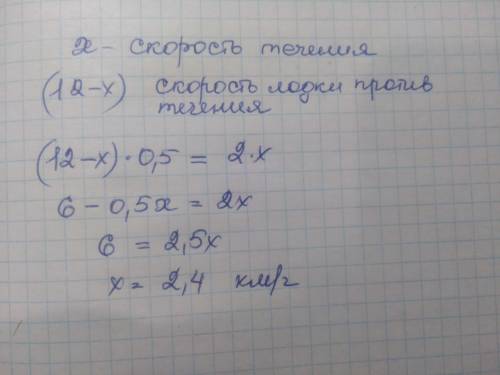 x - скорость течения
(12-x) скорость лодки против
течения
(12-x)·0,5 = 2·x
6 - 0,5x = 2x
6 = 2,5x
x = 2,4 км/г